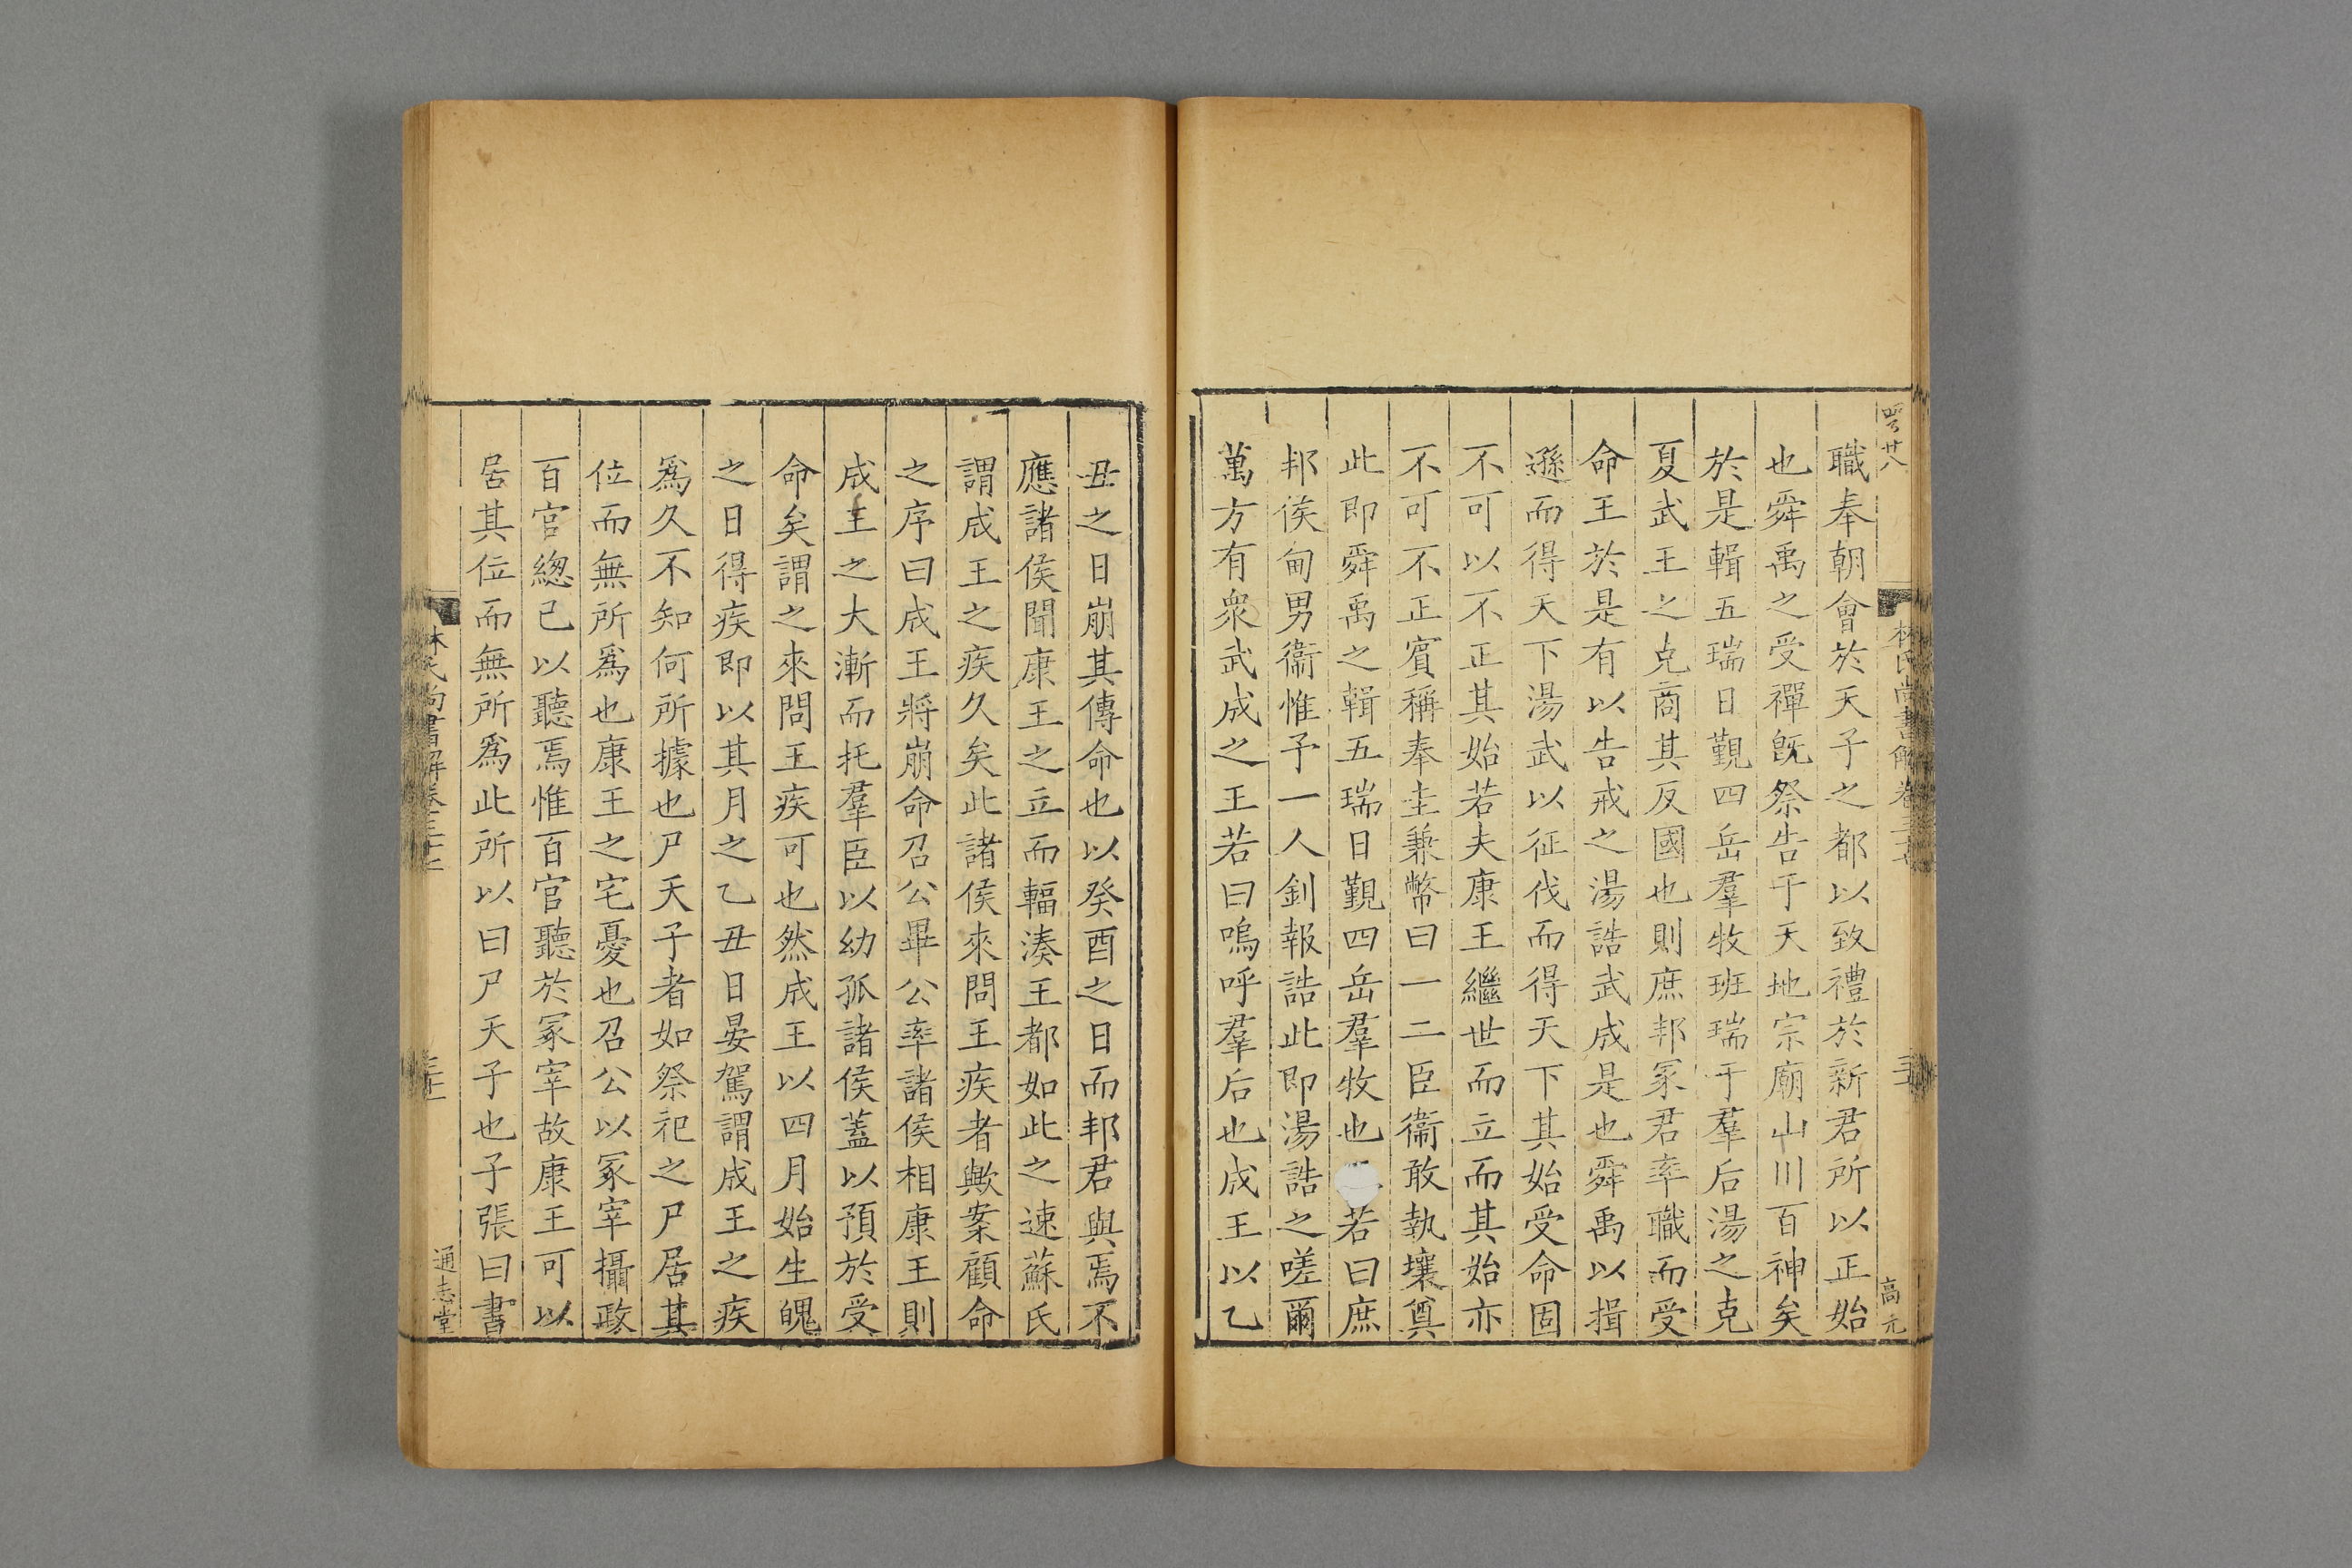 職奉朝會於天子之都以致禮於新君所以正始
也舜禹之受禪旣祭告于天地宗廟山川百神矣
於是輯五瑞日覲四岳羣牧班瑞于羣后湯之克
夏武王之克商其反國也則庶邦冢君率職而受
命王於是有以告戒之湯誥武成是也舜禹以揖
遜而得天下湯武以征伐而得天下其始受命固
不可以不正其始若夫康王繼世而立而其始亦
不可不正賔稱奉圭兼幣曰一二臣衞敢執壤奠
此即舜禹之輯五瑞日覲四岳羣牧也若曰庶
邦侯甸男衞惟予一人釗報誥此即湯誥之嗟爾
萬方有衆武成之王若曰嗚呼羣后也成王以乙
高元
丑之日崩其傳命也以癸酉之日而邦君與焉不
應諸侯聞康王之立而輻湊王都如此之速蘇氏
謂成王之疾久矣此諸侯來問王疾者歟案顧命
之序曰成王將崩命召公畢公率諸侯相康王則
成王之大漸而托羣臣以幼孤諸侯蓋以預於受
命矣謂之來問王疾可也然成王以四月始生魄
之日得疾即以其月之乙丑日晏駕謂成王之疾
爲久不知何所據也尸天子者如祭祀之尸居其
位而無所爲也康王之宅憂也召公以冢宰攝政
百官緫己以聽焉惟百官聽於冢宰故康王可以
居其位而無所爲此所以曰尸天子也子張曰書
林氏尚書解卷三十七
通志堂